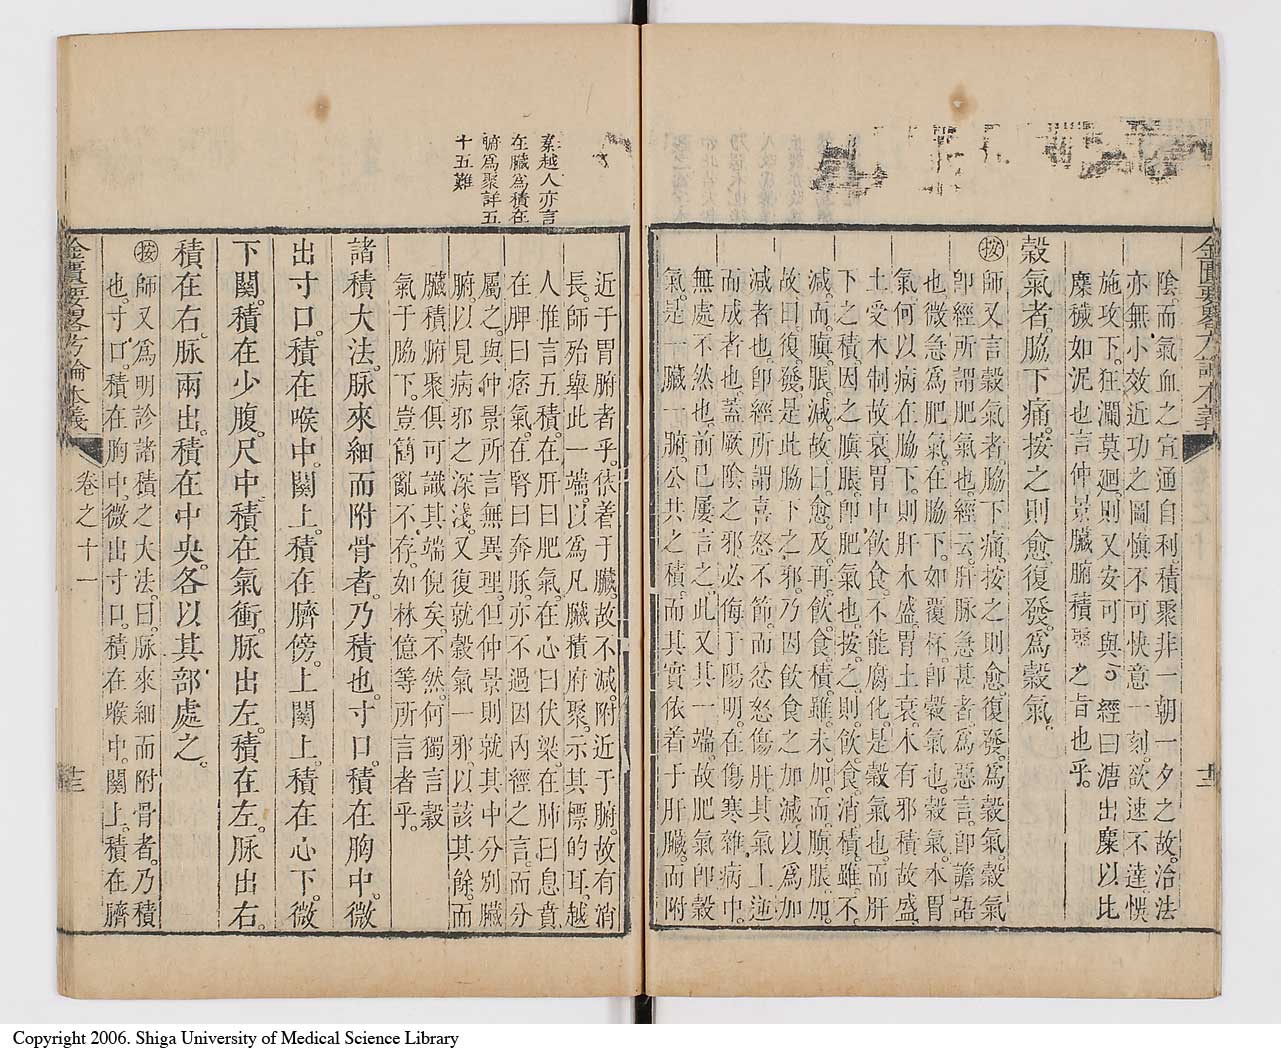 陰而氣血之宣通自利積聚非一朝一夕之故洽法
亦無小效近功之圖愼不可快意一刻欲速不達悞
施攻下狂瀾莫廻則又安可與經曰溏出糜以比
糜穢如泥也言仲景臟腑積聚之旨也乎
穀氣者脇下痛按之則愈復發爲穀氣
按師又言穀氣者脇下痛按之則愈復發爲穀氣穀氣
卽經所謂肥氣也經云肝脉急甚者爲惡言卽譫語
也微急爲肥氣在脇下如覆杯卽穀氣也穀氣本胃
氣何以病在脇下則肝木盛胃土衰木有邪積故盛
土受木制故衰胃中飲食不能腐化是穀氣也而肝
下之積因之䐜脹卽肥氣也按之則飲食消積雖不
減而䐜脹減故曰愈及再飲食積雖未加而䐜脹加
故曰復發是此脇下之邪乃因飲食之加減以爲加
減者也卽經所謂喜怒不節而忿怒傷肝其氣上逆
而成者也蓋厥陰之邪必侮于陽明在傷寒雜病中
無處不然也前已屢言之此又其一端故肥氣卽穀
氣是一臟一腑公共之積而其實依着于肝臟而附
金匱要畧方論本義
秦越人亦言
在臟爲積在
腑爲聚詳五
十五難
近于胃腑者乎依着于臟故不減附近于腑故有消
長師殆舉此一端以爲凡臟積府聚示其標的耳越
人推言五積在肝曰肥氣在心曰伏梁在肺曰息賁
在脾曰痞氣在腎曰奔豚亦不過因內經之言而分
屬之與仲景所言無異理但仲景則就其中分別臟
腑以見病邪之深淺又復就穀氣一邪以該其餘而
臟積腑聚俱可識其端倪矣不然何獨言穀
氣于脇下豈簡亂不存如林億等所言者乎
諸積大法脉來細而附骨者乃積也寸口積在胸中微
出寸口積在喉中關上積在臍傍上關上積在心下微
下關積在少腹尺中積在氣衝脉出左積在左脉出右
積在右脉兩出積在中央各以其部處之
按師又爲明診諸積之大法曰脉來細而附骨者乃積
也寸口積在胸中微出寸口積在喉中關上積在臍
金匱要畧方論本義
卷之十一
Copyright 2006. Shiga University of Medical Science Library